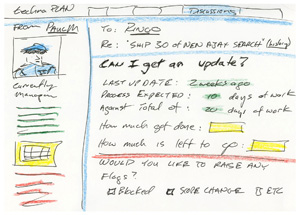 PLAN
Discussions
From PaulM
To: Ringo
Re: "SHIP 30 of NEW AJAX SEARCH"
Can I get an update?
LAST UPDATE: 2 weeks ago
PROCESS EXPECTED: 10 days of work
Against Total of: 20 days of work
Currently
How much got done:
How much is left to go:
WOULD YOU LIKE TO RAISE ANY
Flags?
Blocked SCOPE CHANGE ETC